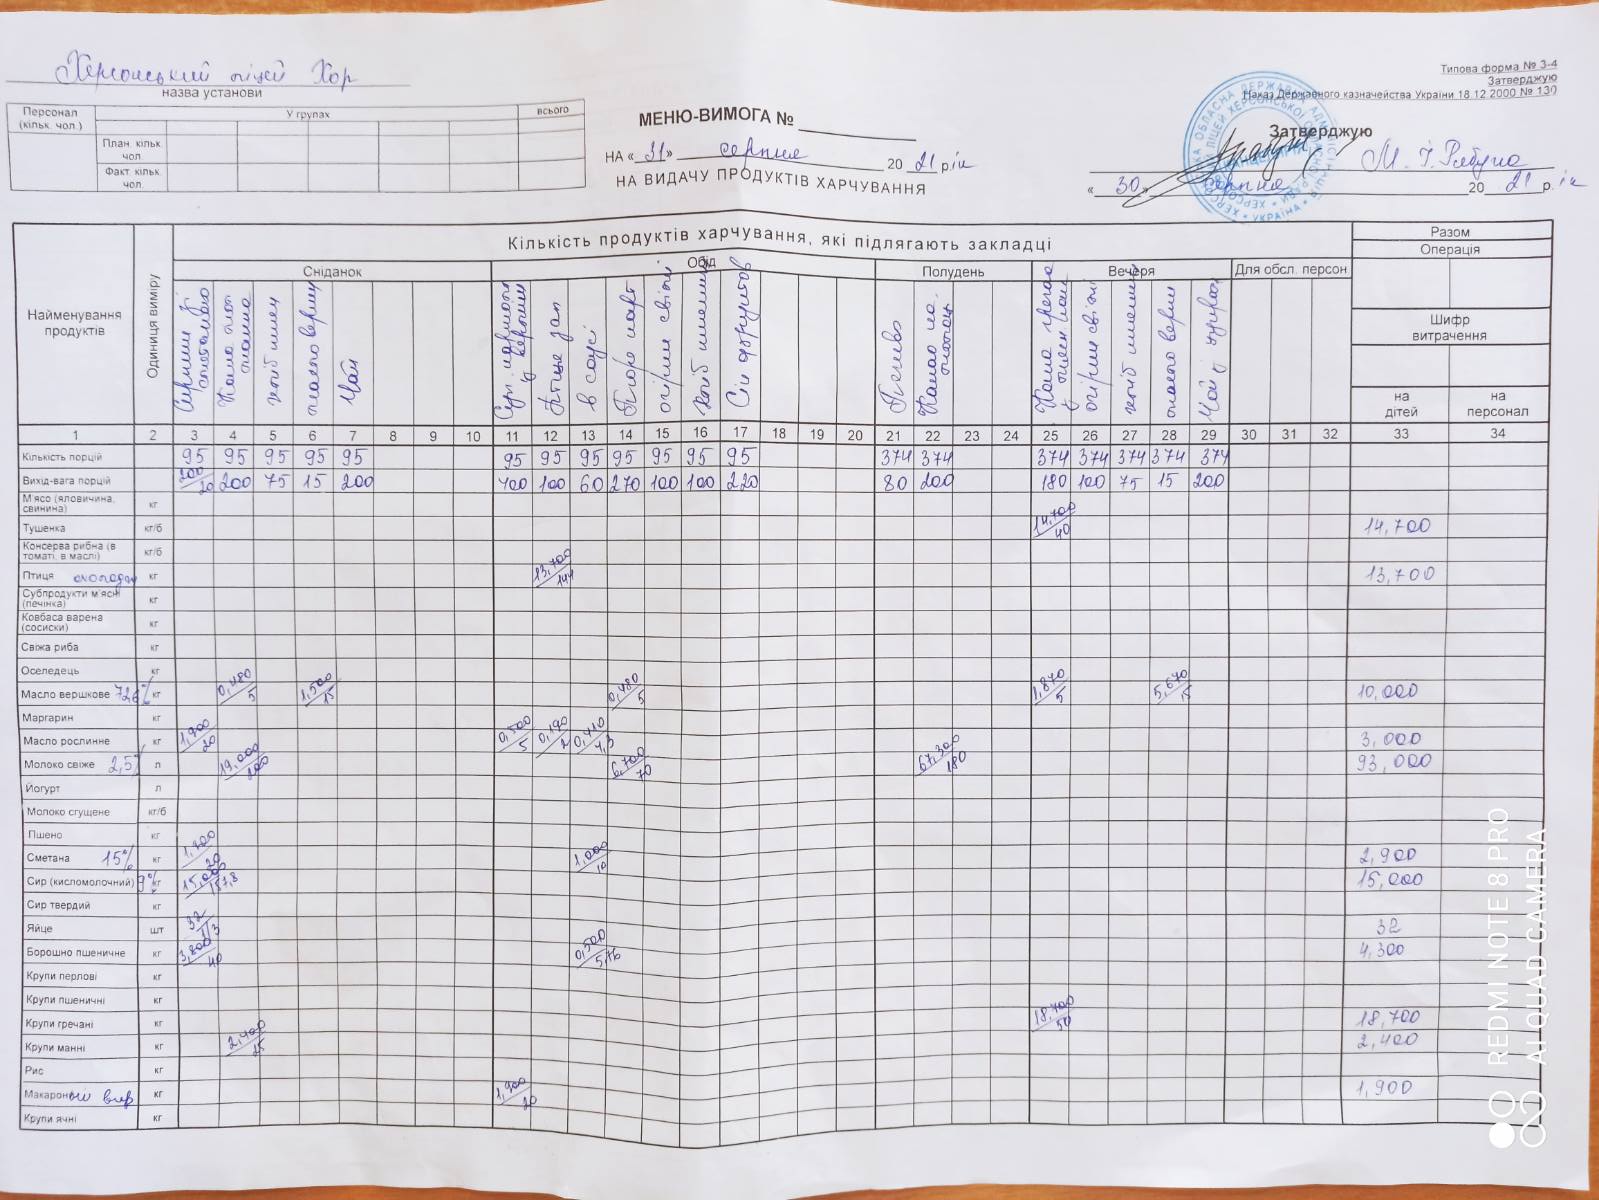 Херсонський ліцей Хор
назва установи
Типова форма № З-4
Затверджую
Наказ Державного казначейства України 18.12.2000 № 130
Персонал (кільк. чол.) У групах всього
План. кільк. чол.
Факт. кільк. чол.
МЕНЮ-ВИМОГА №
НА «31» серпня 2021 р.ік
НА ВИДАЧУ ПРОДУКТІВ ХАРЧУВАННЯ
Затверджую
«30» серпня 2021 р.ік
Найменування продуктів
Одиниця виміру
Кількість продуктів харчування, які підлягають закладці
Разом
Операція
Сніданок Обід Полудень Вечеря Для обсл. персон.
Шифр витрачення
на дітей на персонал
чай
Птиця зап
в соусі
огірки свіжі
Печиво
огірки свіжі
1 2 3 4 5 6 7 8 9 10 11 12 13 14 15 16 17 18 19 20 21 22 23 24 25 26 27 28 29 30 31 32 33 34
Кількість порцій 95 95 95 95 95 95 95 95 95 95 95 95 374 374 374 374 374 374 374
Вихід-вага порцій 200/20 200 75 15 200 400 100 60 270 100 100 220 80 200 180 100 75 15 200
М'ясо (яловичина, свинина) кг
Тушенка кг/б 14,700/40 14,700
Консерва рибна (в томаті, в маслі) кг/б
Птиця кг 13,700/144 13,700
Субпродукти м'ясні (печінка) кг
Ковбаса варена (сосиски) кг
Свіжа риба кг
Оселедець кг
Масло вершкове 72,6% кг 0,480/5 1,500/15 0,480/5 1,870/5 5,670/15 10,000
Маргарин кг
Масло рослинне кг 1,900/20 0,500/5 0,190/2 0,410/4,3 3,000
Молоко свіже 2,5% л 19,000/200 6,700/70 67,300/180 93,000
Йогурт л
Молоко сгущене кг/б
Пшено кг
Сметана 15% кг 1,900/20 1,000/10 2,900
Сир (кисломолочний) 9% кг 15,000/157,8 15,000
Сир твердий кг
Яйце шт 32/1/3 32
Борошно пшеничне кг 3,800/40 0,500/5,76 4,300
Крупи перлові кг
Крупи пшеничні кг
Крупи гречані кг 18,700/50 18,700
Крупи манні кг 2,400/25 2,400
Рис кг
Макарон кг 1,900/20 1,900
Крупи ячні кг
REDMI NOTE 8 PRO
AI QUAD CAMERA